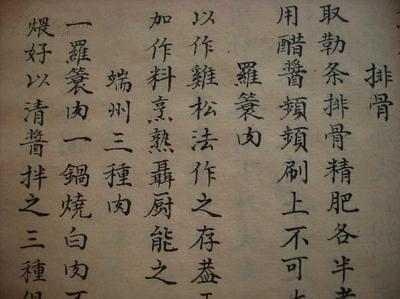 排骨
取勒条排骨精肥各半者
用醋醬頻頻刷上不可
羅簑肉
以作雞松法作之存葢
加作料烹熟聶厨能之
端州三種肉
一羅簑肉一鍋燒白肉不
煨好以清醬拌之三種